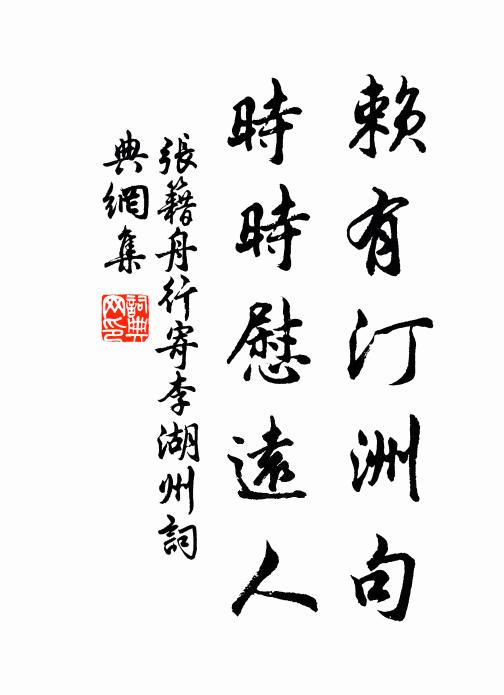 賴有汀洲句
時時慰遠人
張籍舟行寄李湖州詞
典網集
詞典網印